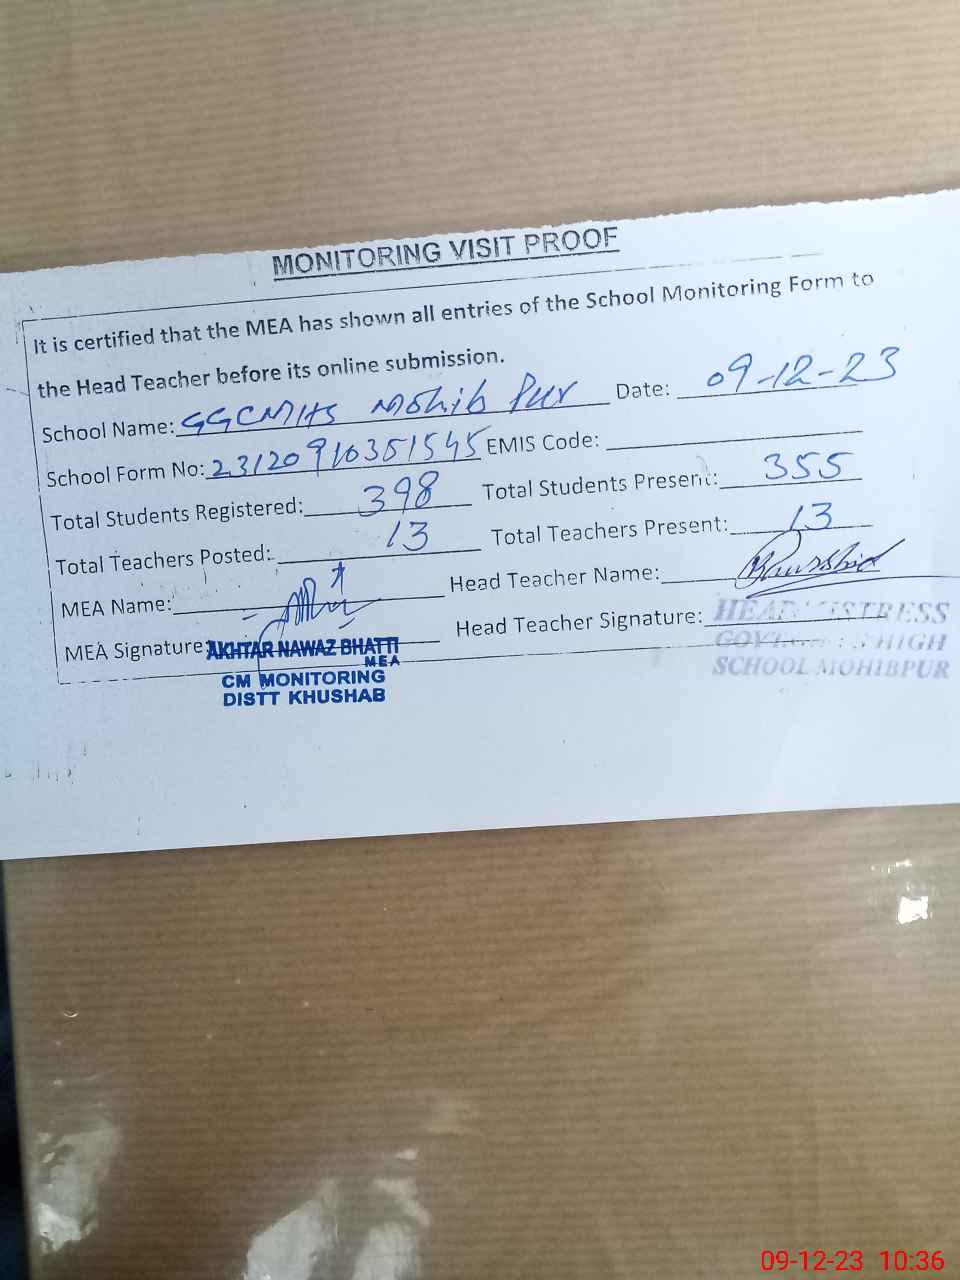 MONITORING VISIT PROOF
It is certified that the MEA has shown all entries of the School Monitoring Form to
the Head Teacher before its online submission.
School Name: GGCMHS Mohib Pur Date: 09-12-23
School Form No: 23120910351545 EMIS Code:
Total Students Registered: 398 Total Students Present: 355
Total Teachers Posted: 13 Total Teachers Present: 13
MEA Name: Head Teacher Name: Khurshid
MEA Signature: Head Teacher Signature:
AKHTAR NAWAZ BHATTI
MEA
CM MONITORING
DISTT KHUSHAB
HEADMISTRESS
HIGH
SCHOOL MOHIBPUR
09-12-23 10:36